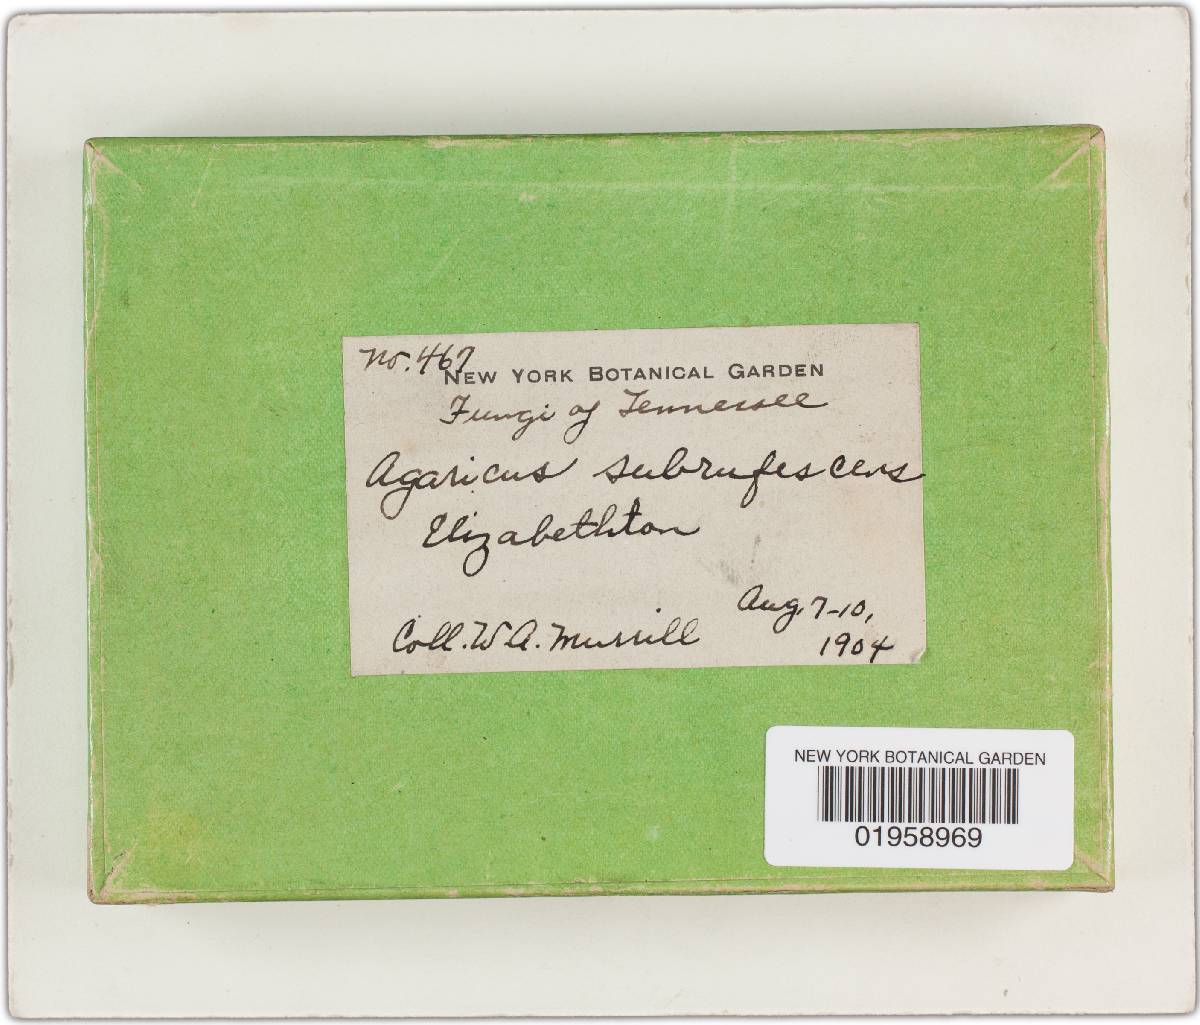 No. 467
NEW YORK BOTANICAL GARDEN
Fungi of Tennessee
Agaricus subrufescens
Elizabethton
Aug. 7-10,
Coll. W. A. Murrill
1904
NEW YORK BOTANICAL GARDEN
01958969